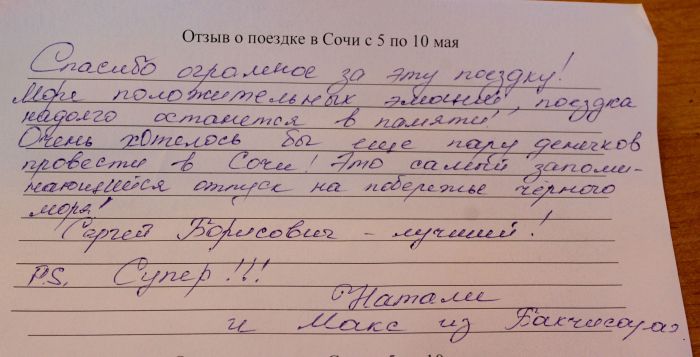 Отзыв о поездке в Сочи с 5 по 10 мая
Спасибо огромное за эту поездку!
Море положительных эмоций, поездка
надолго останется в памяти!
Очень хотелось бы еще пару денечков
провести в Сочи! Это самый запоми-
нающийся отпуск на побережье черного
моря!
Сергей Борисович - лучший!
P.S. Супер!!!
Натали
и Макс из Бахчисарая